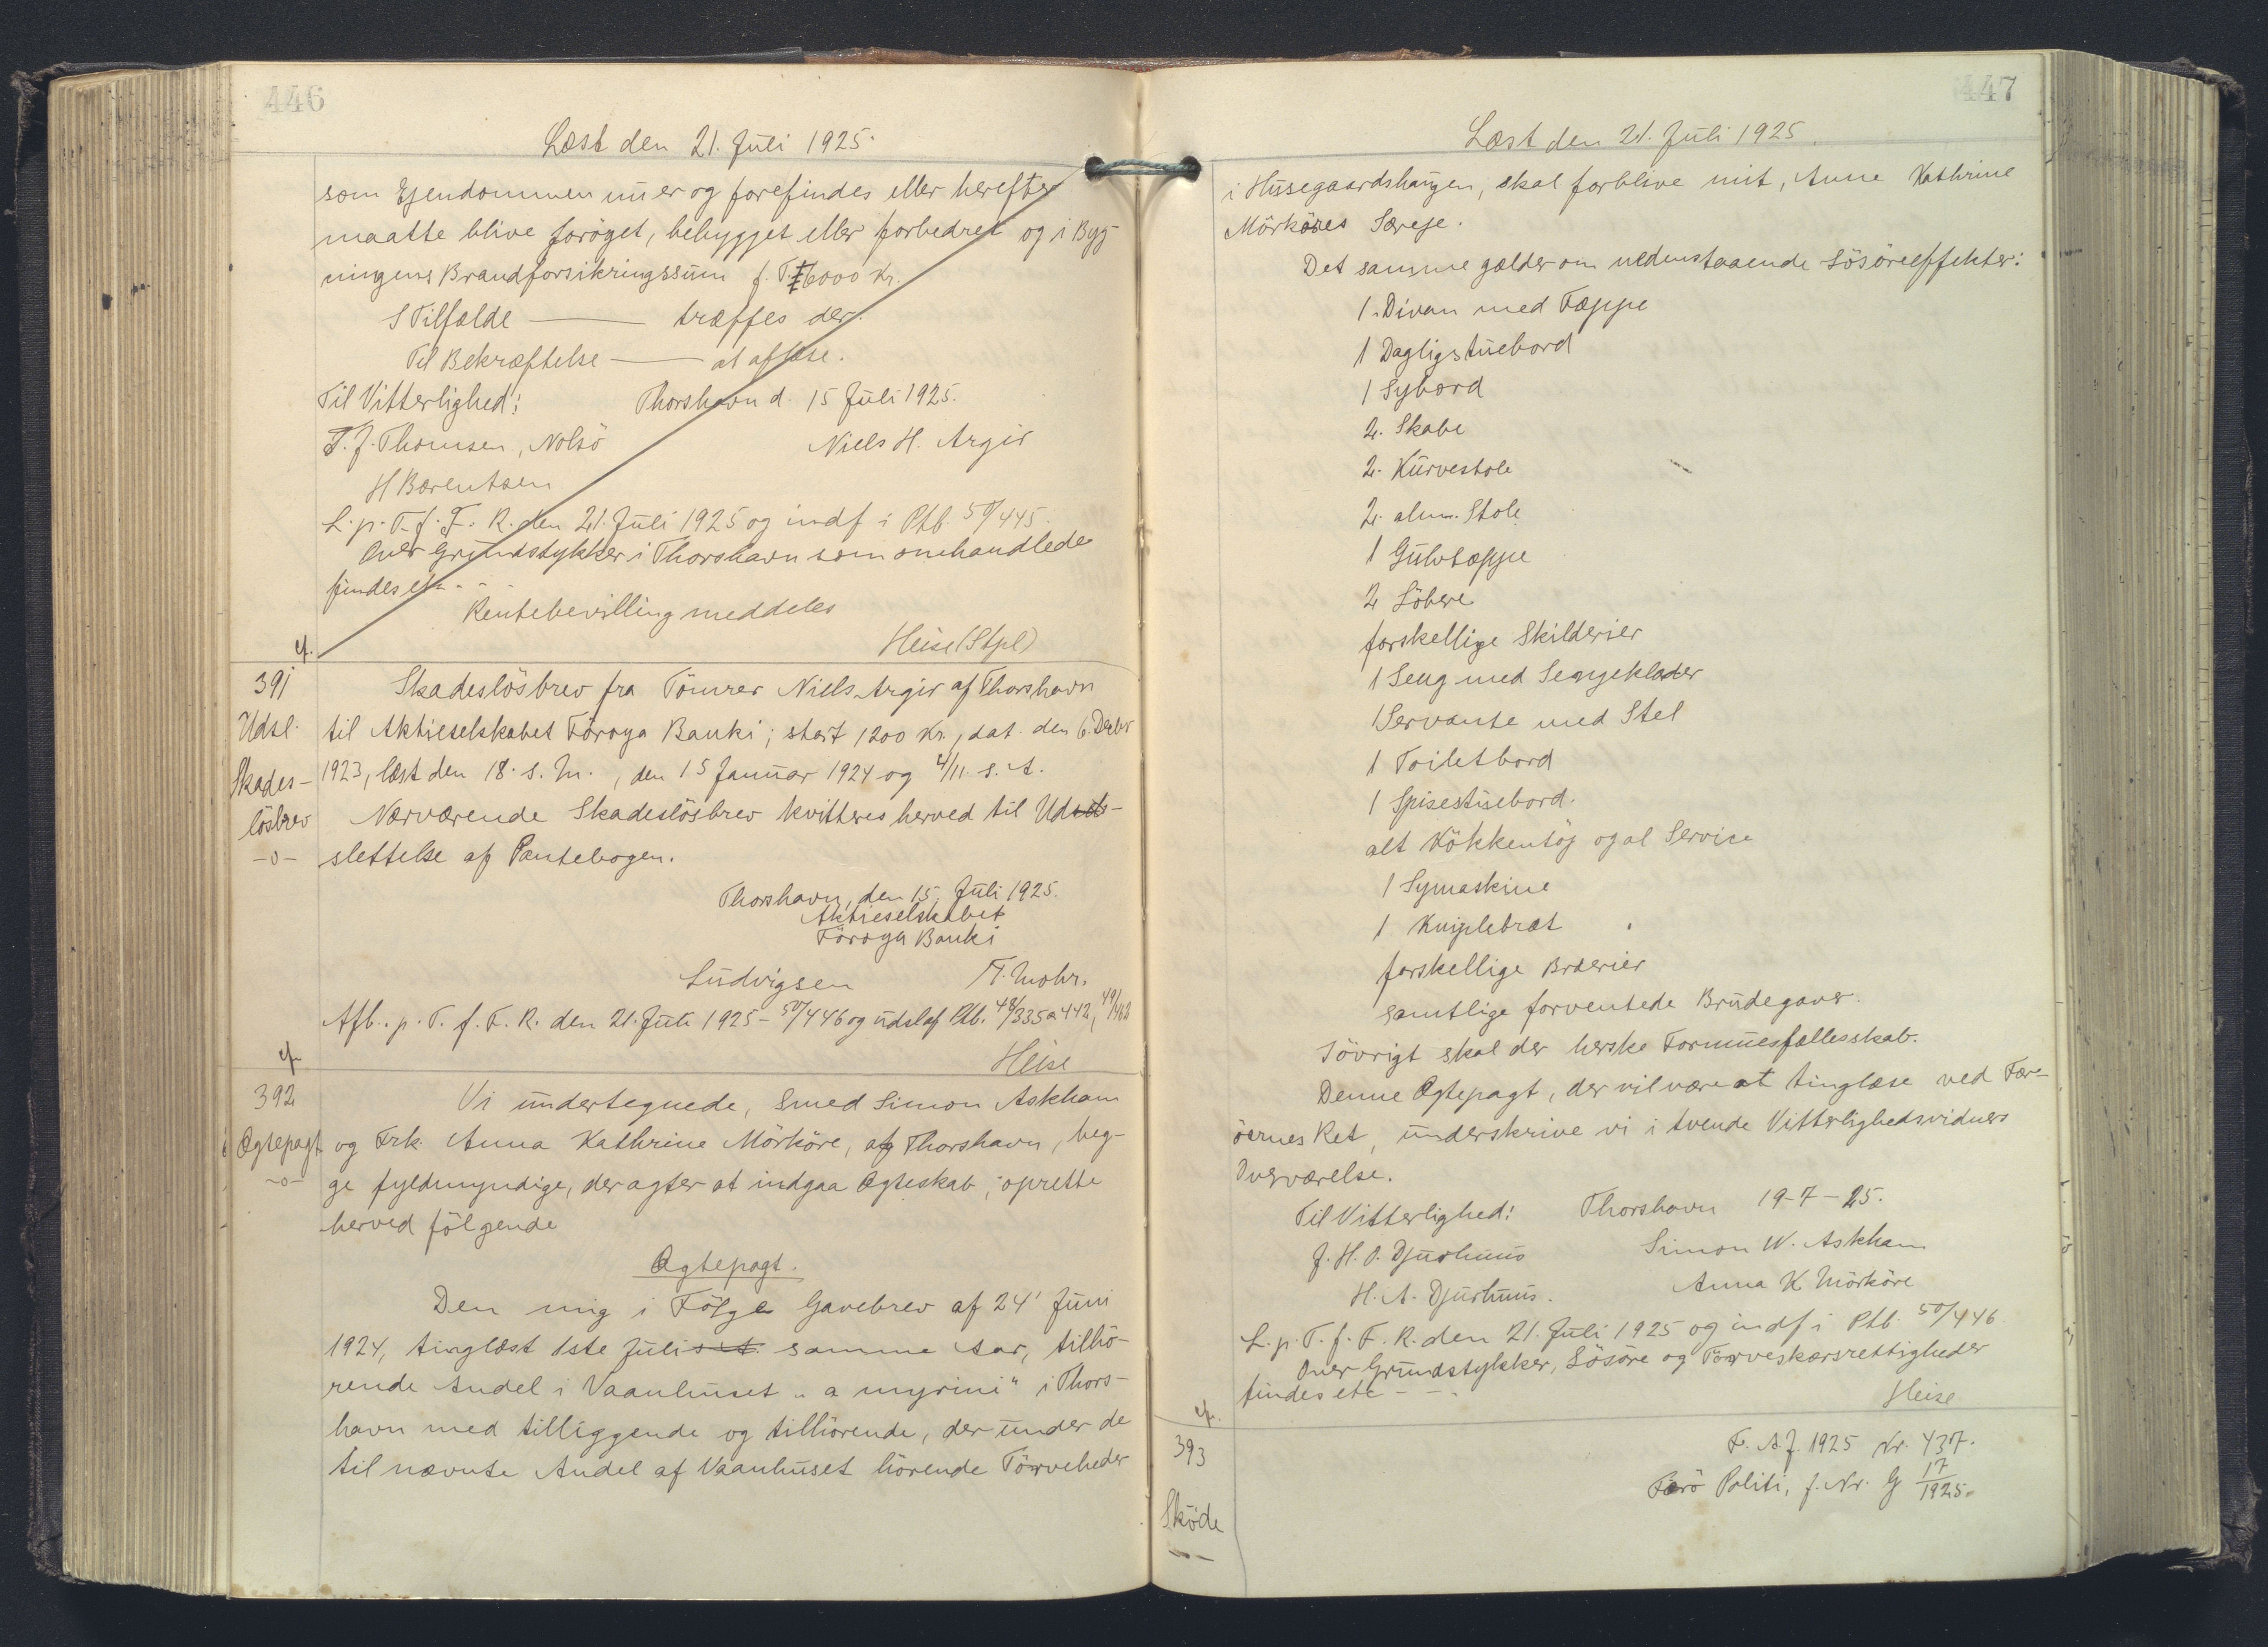 446
Læst den 21. Juli 1925.
som Ejendommen nu er og forefindes eller herefter
maatte blive forøget, bebygget eller forbedret og i Byg-
ningens Brandforsikringssum f. T. 6000 Kr.
I Tilfælde — træffes der.
Til Bekræftelse — at aflæse.
Til Vitterlighed! Thorshavn d. 15 Juli 1925.
T. J. Thomsen, Nolsö Niels H. Argir
H Barentsen
L. p. T. f. F. R. den 21. Juli 1925 og indf i Ptb. 50/445.
Over Grundstykker i Thorshavn som omhandlede
findes etc - - -
Rentebevilling meddeles
Heise (Stpl)
cf.
391
Udsl.
Skades-
lösbrev
-o-
Skadeslösbrev fra Tömrer Niels Argir af Thorshavn
til Aktieselskabet Föroya Banki; stort 1200 Kr., dat. den 6. Decbr
1923, læst den 18. s. M., den 15 Januar 1924 og 4/11. s. A.
Nærværende Skadeslösbrev kvitteres herved til Ud-
slettelse af Pantebogen.
Thorshavn, den 15. Juli 1925.
Aktieselskabet
Föroya Banki
Ludvigsen T. Mohr.
Afl. p. T. f. F. R. den 21. Juli 1925 - 50/446 og udsl af Ptb. 48/335 a 442, 49/462
Heise
cf.
392
Ægtepagt
-o-
Vi undertegnede, Smed Simon Askham
og Frk. Anna Kathrine Mörköre, af Thorshavn, beg-
ge fyldmyndige, der agter at indgaa Ægteskab, oprette
herved fölgende
Ægtepagt.
Den mig i Fölge Gavebrev af 24' Juni
1924, tinglæst 1ste Juli s. A. samme Aar, tilhö-
rende Andel i Vaanhuset "a myrini" i Thors-
havn med tilliggende og tilhörende, derunder de
til nævnte Andel af Vaanhuset hörende Törveheder
447
Læst den 21. Juli 1925.
i Husegaardshaugen, skal forblive mit, Anne Kathrine
Mörköres Særeje.
Det samme gælder om nedenstaaende Lösöreeffekter:
1. Divan med Tæppe
1 Dagligstuebord
1 Sybord
2. Skabe
2. Kurvestole
2. alm. Stole
1 Gulvtæppe
2 Löbere
forskellige Skilderier
1 Seng med Sengeklæder
1 Servante med Stel
1 Toiletbord
1 Spisestuebord.
alt Kökkentöj og al Service
1 Symaskine
1 Kniplebræt
forskellige Broderier
samtlige forventede Brudegaver.
Iövrigt skal der herske Formuesfællesskab.
Denne Ægtepagt, der vil være at tinglæse ved Fær-
öernes Ret, underskrive vi i tvende Vitterlighedsvidners
Overværelse.
Til Vitterlighed! Thorshavn 19-7-25.
J. H. O. Djurhuus Simon W. Askham
H. A. Djurhuus. Anna K Mörköre
L. p. T. f. F. R. den 21. Juli 1925 og indf i Ptb. 50/446.
Over Grundstykker, Lösöre og Törveskærsrettigheder
findes etc - - -
Heise
cf.
393
Sköde
F. A. J. 1925 Nr. 437.
Færö Politi, J. Nr. G 17/1925.